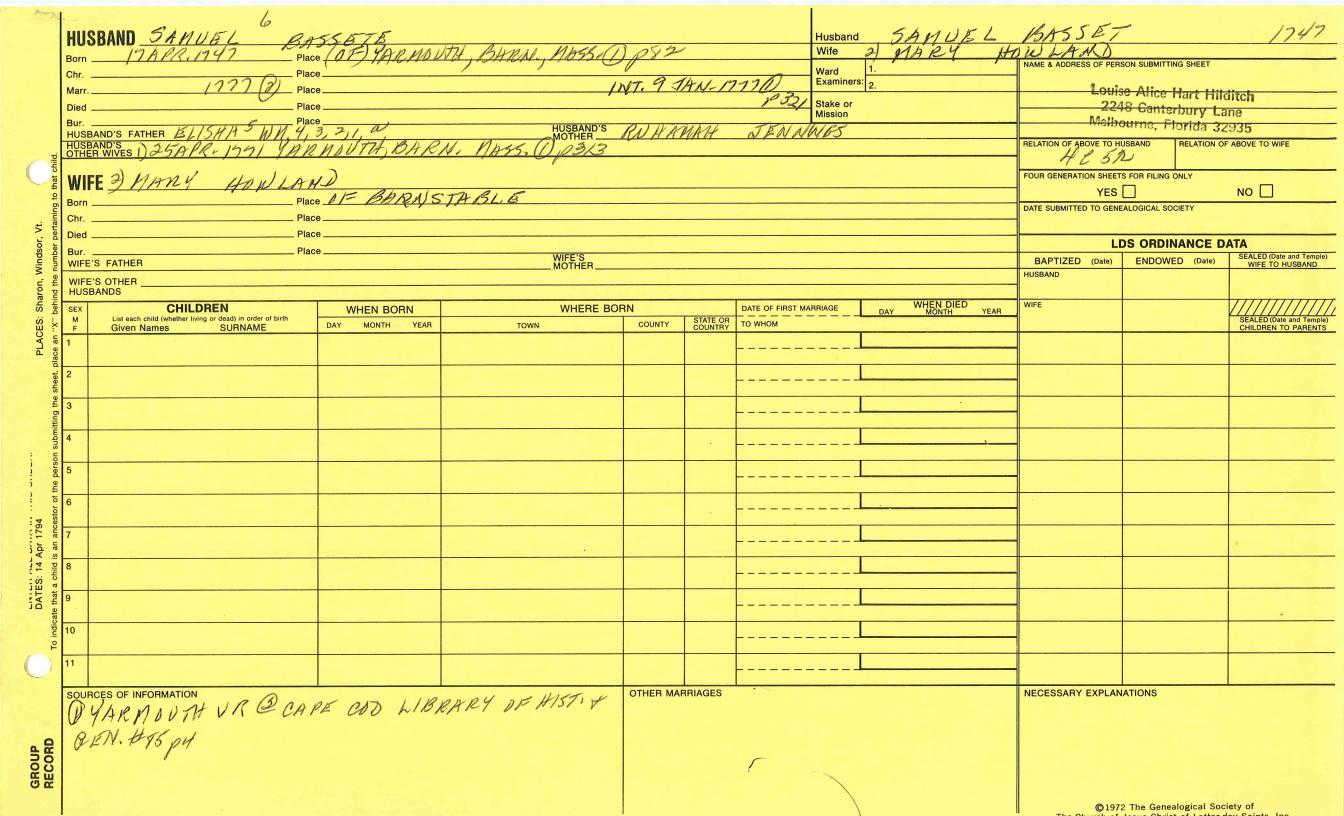 6
HUSBAND SAMUEL BASSETE
Born 17 APR. 1747 Place (OF) YARMOUTH, BARN., MASS. ① p82
Chr. Place
Marr. 1777 ② Place INT. 9 JAN. 1777 ① p321
Died Place
Bur. Place
HUSBAND'S FATHER ELISHA 5 WM, 4, 3, 2, 1, a HUSBAND'S MOTHER RUHAMAH JENNINGS
HUSBAND'S OTHER WIVES 1) 25 APR. 1771 YARMOUTH, BARN. MASS. ① p313
WIFE 2) MARY HOWLAND
Born Place OF BARNSTABLE
Chr. Place
Died Place
Bur. Place
WIFE'S FATHER WIFE'S MOTHER
WIFE'S OTHER HUSBANDS
Husband SAMUEL BASSET 1747
Wife 2) MARY HOWLAND
Ward Examiners: 1.
2.
Stake or Mission
NAME & ADDRESS OF PERSON SUBMITTING SHEET
Louise Alice Hart Hilditch
2248 Canterbury Lane
Melbourne, Florida 32935
RELATION OF ABOVE TO HUSBAND RELATION OF ABOVE TO WIFE
4C 5R
FOUR GENERATION SHEETS FOR FILING ONLY
YES NO
DATE SUBMITTED TO GENEALOGICAL SOCIETY
LDS ORDINANCE DATA
BAPTIZED (Date) ENDOWED (Date) SEALED (Date and Temple) WIFE TO HUSBAND
HUSBAND
WIFE
SEALED (Date and Temple) CHILDREN TO PARENTS
SEX M F
CHILDREN
List each child (whether living or dead) in order of birth
Given Names SURNAME
WHEN BORN
DAY MONTH YEAR
WHERE BORN
TOWN COUNTY STATE OR COUNTRY
DATE OF FIRST MARRIAGE
TO WHOM
WHEN DIED
DAY MONTH YEAR
1
2
3
4
5
6
7
8
9
10
11
SOURCES OF INFORMATION
① YARMOUTH VR ② CAPE COD LIBRARY OF HIST. &
GEN. #95 p4
OTHER MARRIAGES
NECESSARY EXPLANATIONS
PLACES: Sharon, Windsor, Vt.
DATES: 14 Apr 1794
To indicate that a child is an ancestor of the person submitting the sheet, place an "X" behind the number pertaining to that child.
GROUP RECORD
©1972 The Genealogical Society of
The Church of Jesus Christ of Latter-day Saints, Inc.